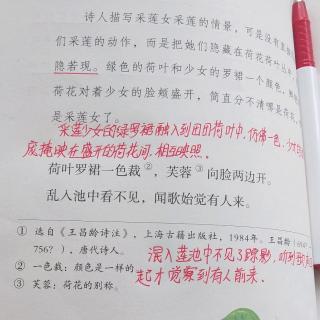 诗人描写采莲女采莲的情景，可是没有直
们采莲的动作，而是把她们隐藏在荷花荷叶
隐若现。绿色的荷叶和少女的罗裙一个颜色
荷花对着少女的脸颊盛开，简直分不清哪是荷花
是采莲女了。
采莲少女的绿罗裙融入到田田荷叶中，仿佛一色，少女的
庞掩映在盛开的荷花间，相互映照。
荷叶罗裙一色裁②，芙蓉③向脸两边开。
乱入池中看不见，闻歌始觉有人来。
① 选自《王昌龄诗注》，上海古籍出版社，1984年。王昌龄
756？），唐代诗人。
② 一色裁：颜色是一样的
③ 芙蓉：荷花的别称。
混入莲池中不见了踪影，听到歌
起才觉察到有人前来。